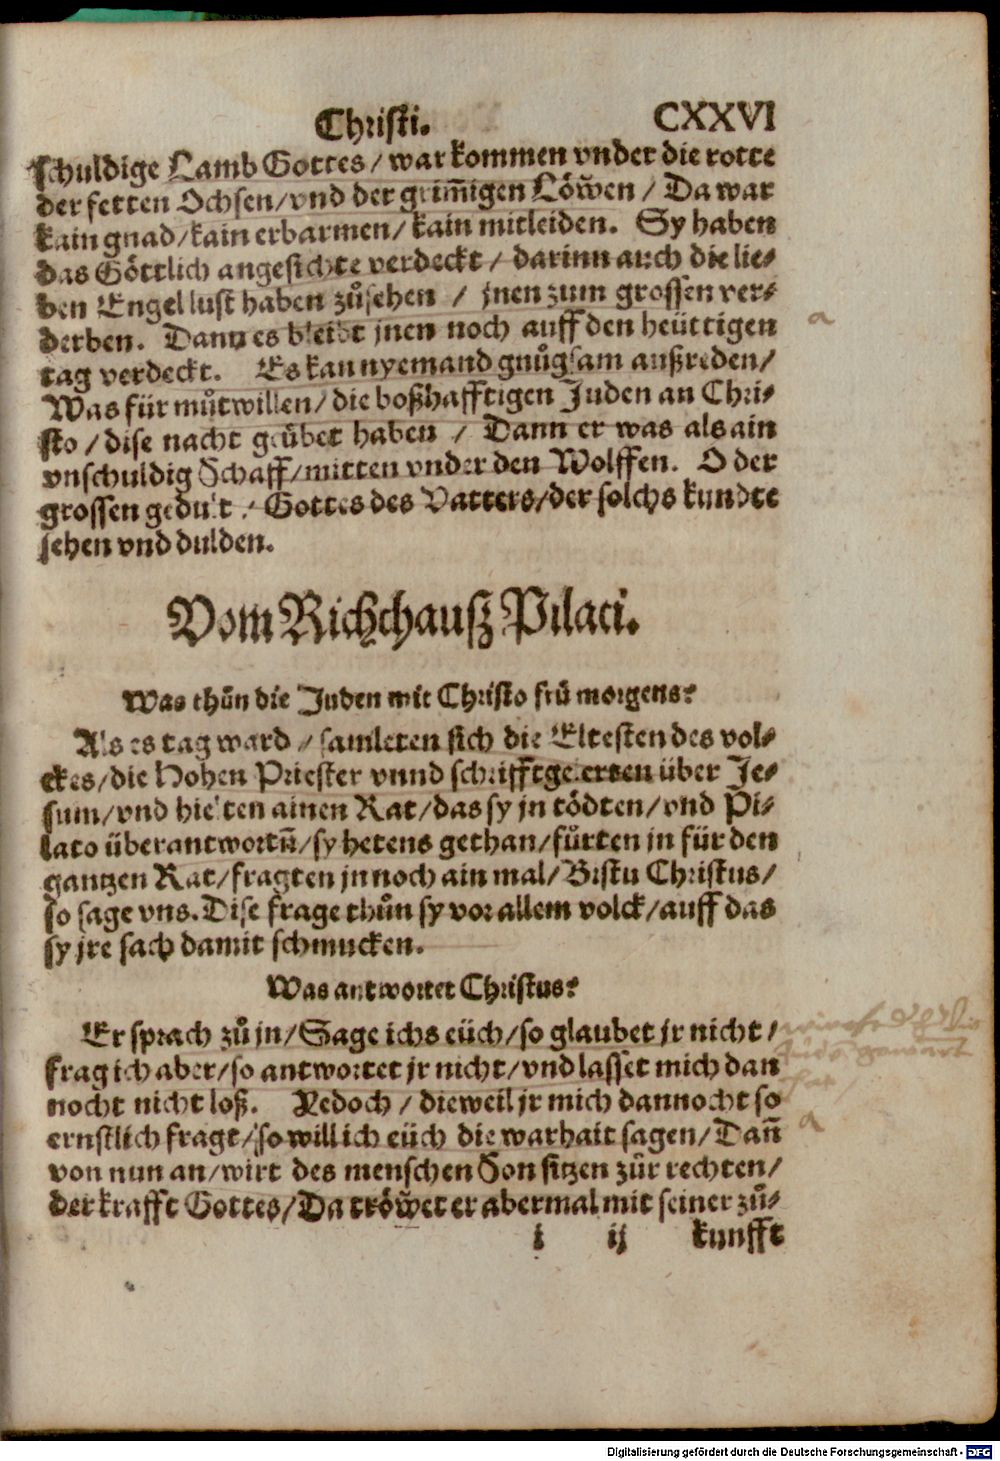 Christi. CXXVI
schuldige Lamb Gottes / war kommen vnder die rotte
der fetten Ochsen / vnd der grim̃igen Löw̃en / Da war
kain gnad / kain erbarmen / kain mitleiden. Sy haben
das Göttlich angesichte verdeckt / darinn auch die lie-
ben Engel lust haben zůsehen / jnen zum grossen ver-
derben. Dann es bleibt jnen noch auff den heüttigen
tag verdeckt. Es kan nyemand gnůgsam außreden /
Was für můtwillen / die boßhafftigen Juden an Chri-
sto / dise nacht geübet haben / Dann er was als ain
vnschuldig Schaff / mitten vnder den Wolffen. O der
grossen gedult / Gottes des Vatters / der solchs kundte
sehen vnd dulden.
Vom Richthauß Pilati.
Was thůn die Juden mit Christo frů morgens?
Als es tag ward / samleten sich die Eltesten des vol-
ckes / die Hohen Priester vnnd schrifftgelerten über Je-
sum / vnd hielten ainen Rat / das sy jn tödten / vnd Pi-
lato überantwortñ / sy hetens gethan / fůrten jn für den
gantzen Rat / fragten jn noch ain mal / Bistu Christus /
so sage vns. Dise frage thůn sy vor allem volck / auff das
sy jre sach damit schmucken.
Was antwortet Christus?
Er sprach zů jn / Sage ichs eüch / so glaubet jr nicht /
frag ich aber / so antwortet jr nicht / vnd lasset mich dan
nocht nicht loß. Jedoch / dieweil jr mich dannocht so
ernstlich fragt / so will ich eüch die warhait sagen / Dañ
von nun an / wirt des menschen Son sitzen zůr rechten /
der krafft Gottes / Da tröw̃et er abermal mit seiner zů-
i ij kunfft
a
a
Digitalisierung gefördert durch die Deutsche Forschungsgemeinschaft - DFG